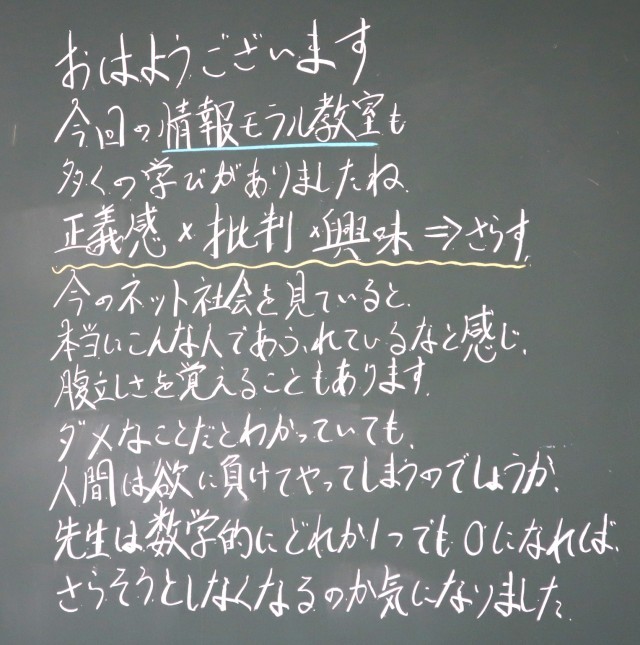 おはようございます
今回の情報モラル教室も
多くの学びがありましたね.
正義感×批判×興味⇒さらす.
今のネット社会を見ていると、
本当にこんな人であふれているなと感じ、
腹立しさを覚えることもあります.
ダメなことだとわかっていても、
人間は欲に負けてやってしまうのでしょうか.
先生は数学的にどれか1つでも0になれば、
さらそうとしなくなるのか気になりました.